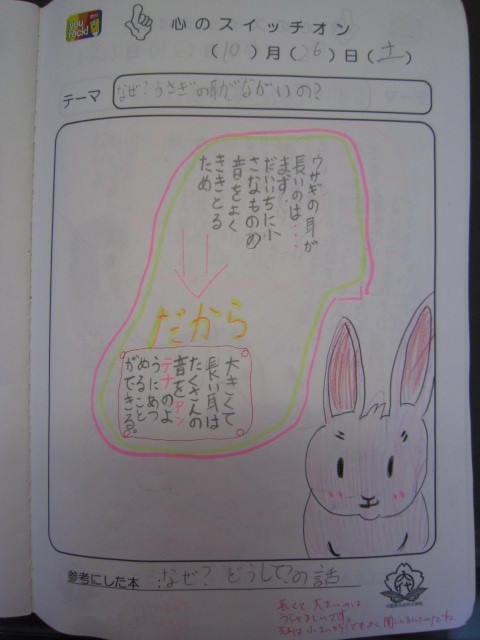 you rock!
心のスイッチオン
(10)月(26)日(土)
テーマ
なぜ?うさぎの耳がながいの?
ウサギの耳が
長いのは…
まず、
だいいちに小
さなものの
音をよく
ききとる
ため
だから
大きくて
長い耳は
たくさんの
音をアン
テナのよ
うにあつ
めること
ができる。
参考にした本
なぜ?どうしての話
長くて大きいのは